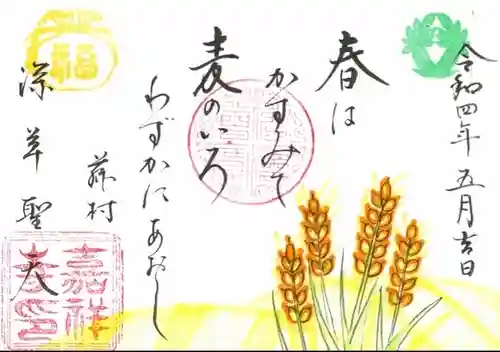 令和四年 五月吉日
春は
かすみて
麦のいろ
わずかにあおし
蕪村
深草聖天
福
嘉祥